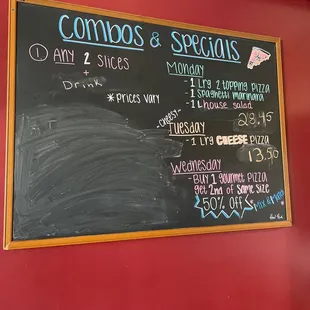 COMBOS & SPECIALS
① ANY 2 SLICES
+
Drink
*Prices vary
Monday
- 1 Lrg 2 topping pizza
- 1 Spaghetti marinara
- 1 L house salad
28.45
-cheesy-
Tuesday
- 1 Lrg CHEESE pizza
13.56
Wednesday
- Buy 1 gourmet pizza
get 2nd of SAME SIZE
50% OFF
Mix & Match